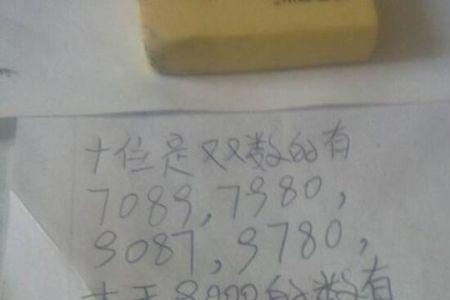 十位是双数的有
7089,7980,
9087,9780,
大于8000的数有